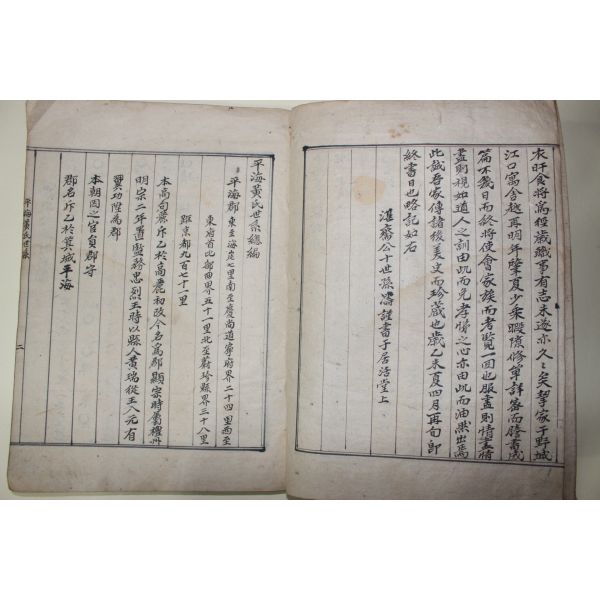 衣旰食將爲經歲職事有志未遂亦久〻矣挈家于野城
江口寓舍越再明年肇夏少乘暇隙修單詳審而謄書成
篇不幾日而終將使會家族而者覽一囬也服盡則情盡情
盡則視如道人之訓由此而免孝悌之心亦由此而油然出焉
此誠吾家傳諸後美史而珍藏也歲乙未夏四月再旬卽
終書日也略記如右
淮齋公十世孫 謹書于居活堂上
平海黃氏世系總編
平海郡 東至海岸七里南至慶尚道寧府界二十四里西至
東府首比部曲界五十一里北至蔚珍縣界三十八里
距京都九百七十一里
本高句麗斤乙於高麗初改今名爲郡顯宗時屬禮州
明宗二年置監務忠烈王時以縣人黃瑞從王入元有
翼功陞爲郡
本朝因之官員郡守
郡名斤乙於箕城平海
平海黃氏世系
二